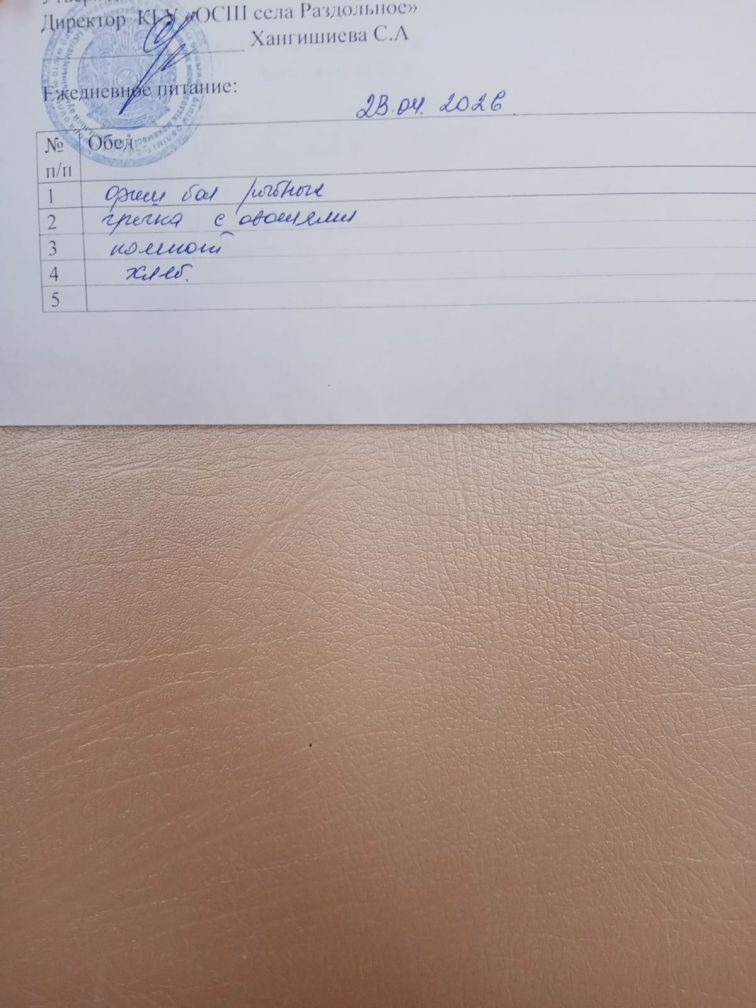 Директор КГУ «ОСШ села Раздольное»
Хангишиева С.А
Ежедневное питание:
28.04. 2026
№ п/п Обед:
1 фиш бол рыбные
2 гречка с овощами
3 компот
4 хлеб.
5